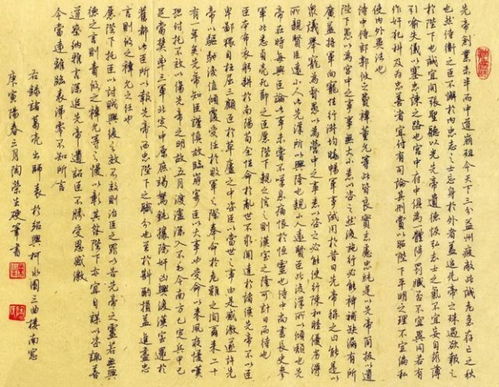 先帝創業未半而中道崩殂今天下三分益州疲敝此誠危急存亡之秋
也然侍衛之臣不懈於內忠志之士忘身於外者蓋追先帝之殊遇欲報之
於陛下也誠宜開張聖聽以光先帝遺德恢弘志士之氣不宜妄自菲薄
引喻失義以塞忠諫之路也宮中府中俱為一體陟罰臧否不宜異同若有
作奸犯科及為忠善者宜付有司論其刑賞以昭陛下平明之理不宜偏私
使內外異法也
侍中侍郎郭攸之費禕董允等此皆良實志慮忠純是以先帝簡拔以遺
陛下愚以為宮中之事事無大小悉以咨之然後施行必能裨補闕漏有所
廣益將軍向寵性行淑均曉暢軍事試用於昔日先帝稱之曰能是以
眾議舉寵為督愚以為營中之事悉以咨之必能使行陣和睦優劣得所
親賢臣遠小人此先漢所以興隆也親小人遠賢臣此後漢所以傾頹也先
帝在時每與臣論此事未嘗不嘆息痛恨於桓靈也侍中尚書長史參
軍此悉貞良死節之臣願陛下親之信之則漢室之隆可計日而待也
臣本布衣躬耕於南陽苟全性命於亂世不求聞達於諸侯先帝不以臣
卑鄙猥自枉屈三顧臣於草廬之中咨臣以當世之事由是感激遂許先
帝以驅馳後值傾覆受任於敗軍之際奉命於危難之間爾來二十
有一年矣先帝知臣謹慎故臨崩寄臣以大事也受命以來夙夜憂嘆
恐託付不效以傷先帝之明故五月渡瀘深入不毛今南方已定兵甲已
足當獎率三軍北定中原庶竭駑鈍攘除奸凶興復漢室還於
舊都此臣所以報先帝而忠陛下之職分也至於斟酌損益進盡忠
言則攸之禕允之任也
願陛下託臣以討賊興復之效不效則治臣之罪以告先帝之靈若無興
德之言則責攸之禕允等之慢以彰其咎陛下亦宜自謀以咨諏善
道察納雅言深追先帝遺詔臣不勝受恩感激
今當遠離臨表涕零不知所言
右錄諸葛亮出師表於紹興柯北園三曲樓南窗
庚寅陽春三月陶榮生硬筆書